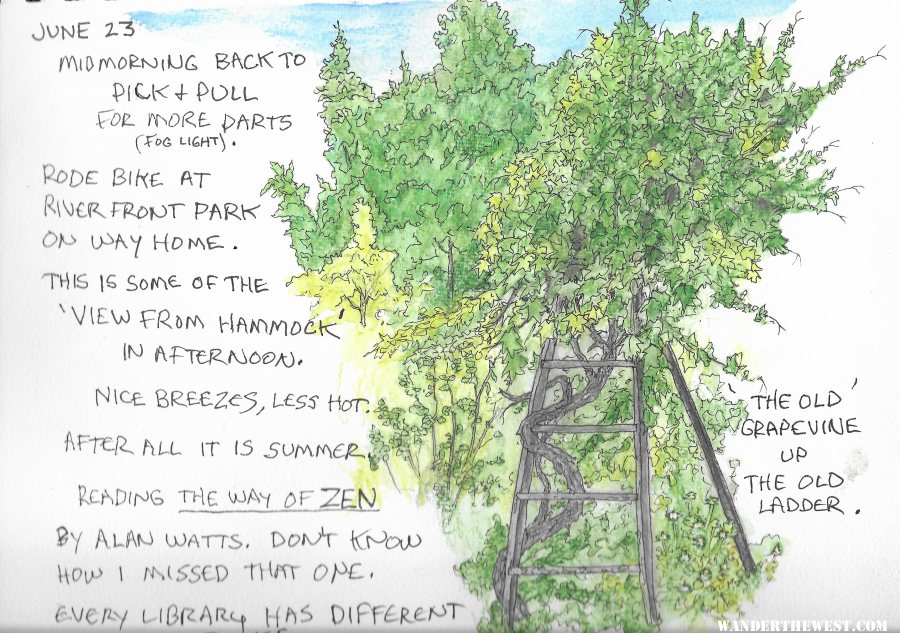 JUNE 23
MIDMORNING BACK TO
PICK + PULL
FOR MORE PARTS
(FOG LIGHT).
RODE BIKE AT
RIVER FRONT PARK
ON WAY HOME.
THIS IS SOME OF THE
'VIEW FROM HAMMOCK'
IN AFTERNOON.
NICE BREEZES, LESS HOT.
AFTER ALL IT IS SUMMER.
READING THE WAY OF ZEN
BY ALAN WATTS. DON'T KNOW
HOW I MISSED THAT ONE.
EVERY LIBRARY HAS DIFFERENT
'THE OLD'
GRAPEVINE
UP
THE OLD
LADDER.
WANDERTHEWEST.COM